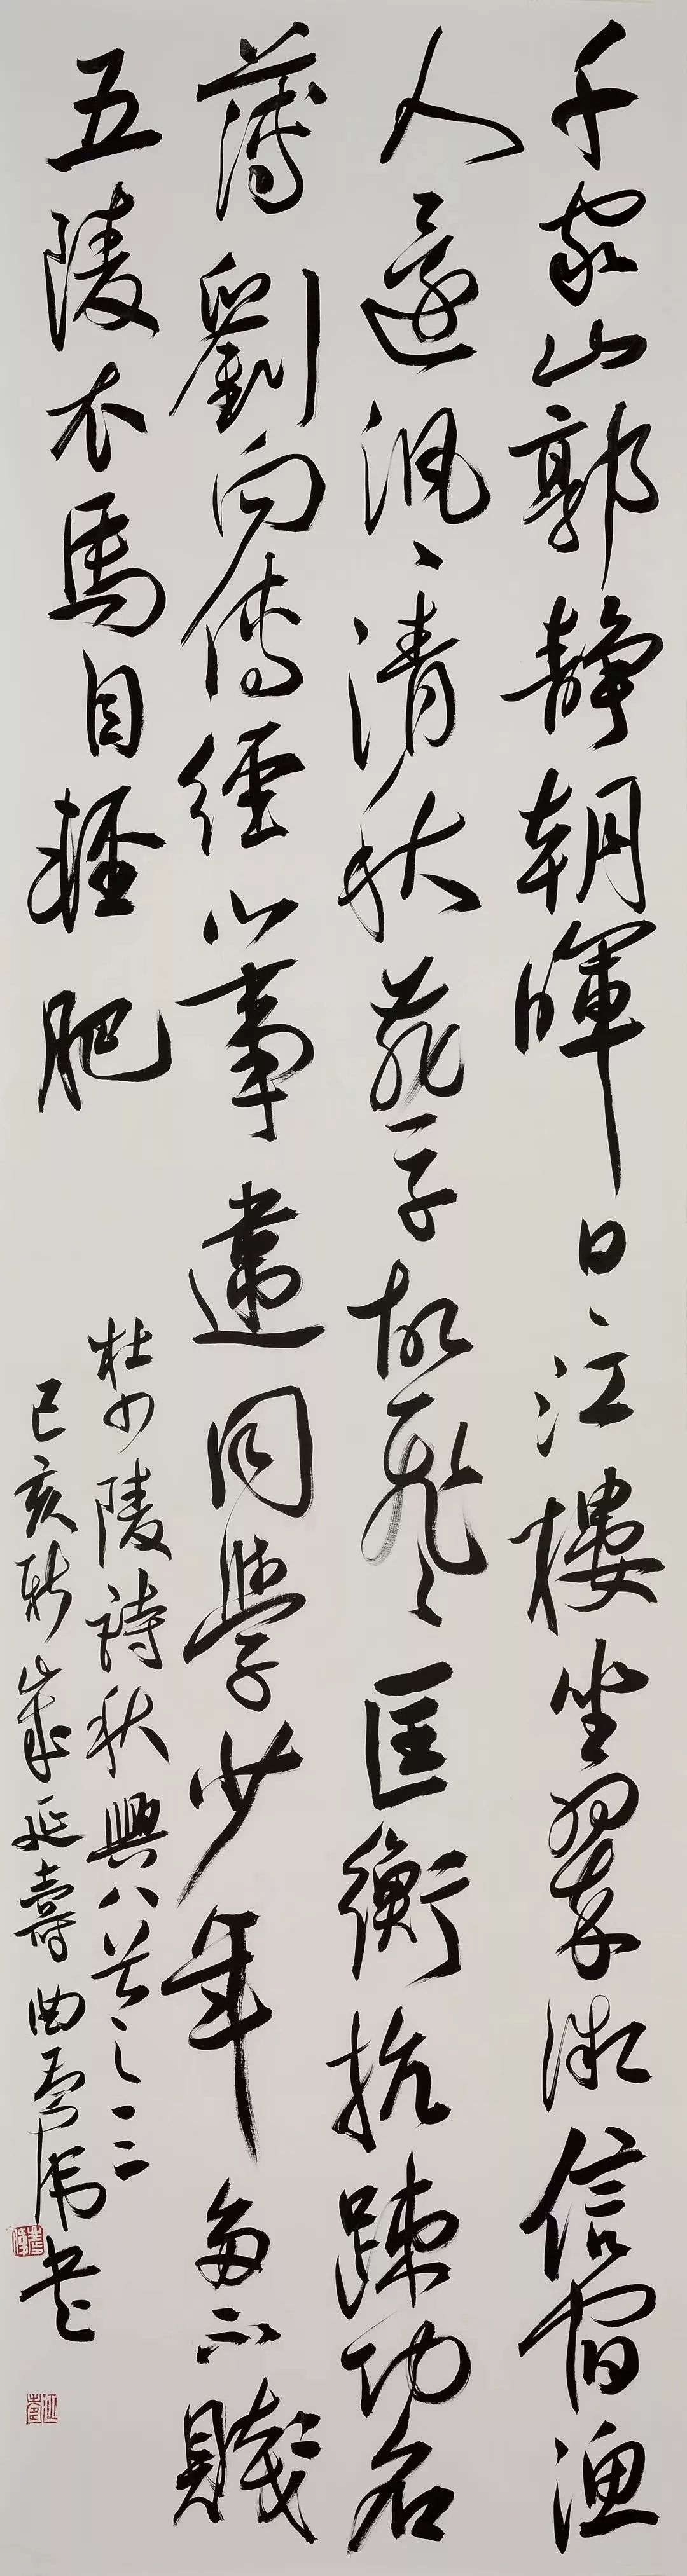 千家山郭静朝暉日〻江樓坐翠微信宿漁
人還汎〻清秋燕子故飛〻匡衡抗踈功名
薄劉向傳經心事違同學少年多不賤
五陵衣馬自輕肥
杜少陵詩秋興八首之三
己亥新歲延壽曲書